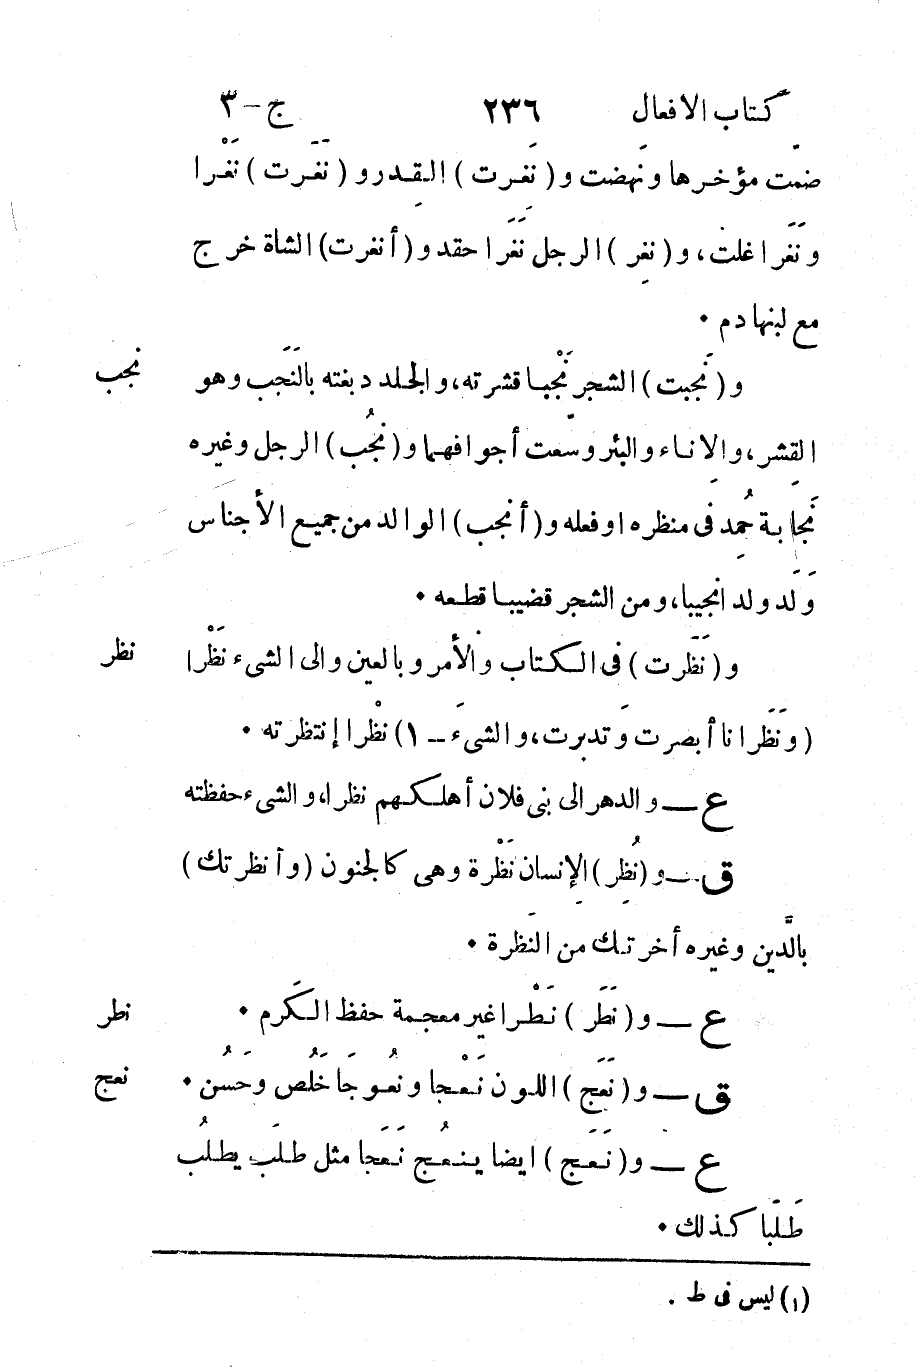 كتاب الافعال ٢٣٦ ج - ٣
ضمّت مؤخرها ونَهضت و (نَغِرت) القِدر و (نَغَرت) نَغْرا
ونَغَرا غلت، و (نغِر) الرجل نَغَرا حقد و (أنغرت) الشاة خرج
مع لبنها دم ٠
و (نَجبت) الشجر نَجْبا قشرته، والجلد دبغته بالنَجَب وهو نجب
القِشر، والإناء والبئر وسّعت أجوافهما و (نجُب) الرجل وغيره
نَجابة حُمِد فى منظره او فعله و (أنجب) الوالد من جميع الأجناس
وَلَد ولدا نجيبا، ومن الشجر قضيبا قطعه ٠
و (نَظَرت) فى الكتاب والأمر وبالعين والى الشىء نَظْرا نظر
(ونَظَرانا أبصرت وتَدبرت، والشىءَ ــ ١) نظْرا إنتظرته ٠
ع ــ والدهر الى بنى فلان أهلكهم نظرا، والشىء حفظته
ق ــ و (نُظِر) الإنسان نَظْرة وهى كالجنون (وأنظرتك)
بالدَّين وغيره أخرتك من النَظِرة ٠
ع ــ و (نَطَر) نَطْرا غير معجمة حفظ الكَرم ٠ نطر
ق ــ و (نَعَج) اللون نَعْجا ونُعوجا خَلُص وحَسُن ٠ نعج
ع ــ و (نَعَج) ايضا ينعُج نَعَجا مثل طلَب يطلُب
طَلَبا كذلك ٠
(١) ليس فى ط .